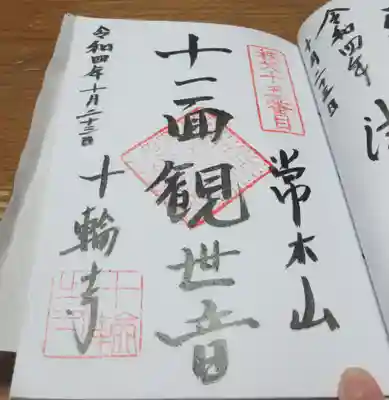 令和四年
十月二十三日
常木山
十一面観世音
十輪寺
令和四年十月二十三日